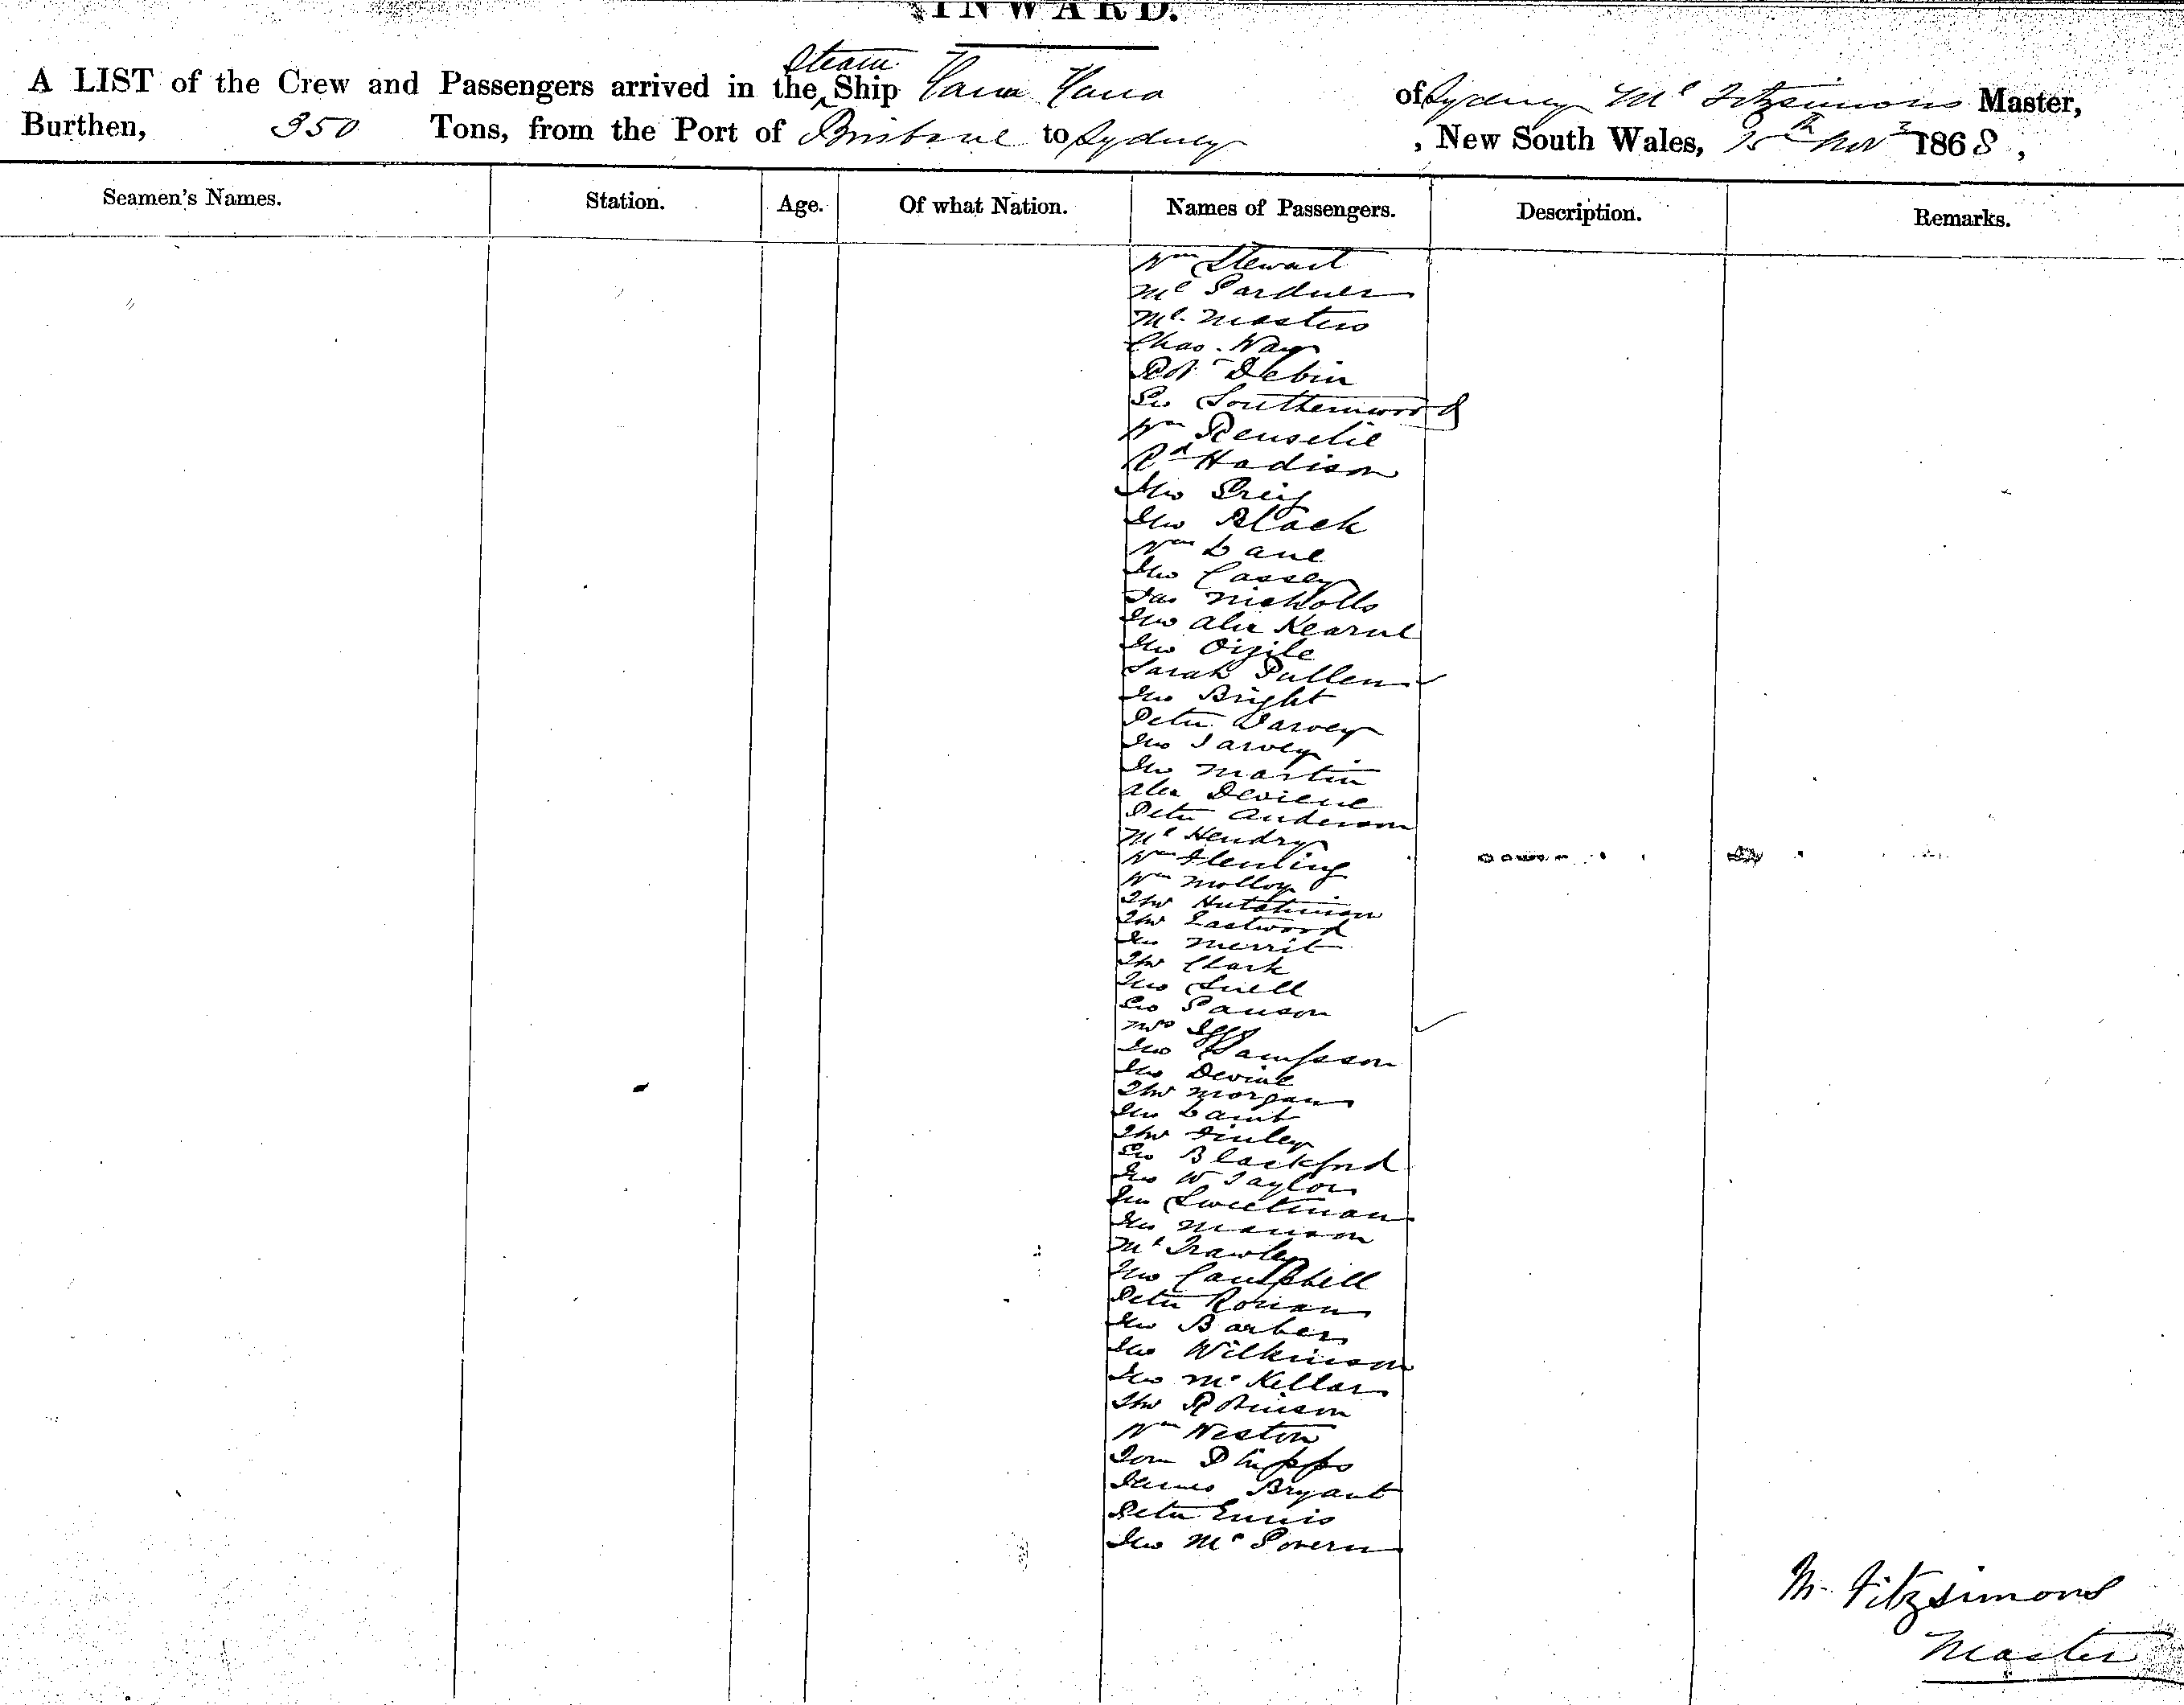 INWARD.
Steam
A LIST of the Crew and Passengers arrived in the Ship Yarra Yarra of Sydney Ml Fitzsimons Master,
Burthen, 350 Tons, from the Port of Brisbane to Sydney , New South Wales, Nov 1868 ,
Seamen's Names. Station. Age. Of what Nation. Names of Passengers. Description. Remarks.
Wm Stewart
Ml Gardner
Ml Masters
Chas. Way
Debin
Geo Southernwood
Wm
Rd Hadison
Jno Greig
Jno Black
Wm Lane
Jno Cassey
Jas Nicholls
Jno Alex Kearne
Jno
Sarah Pullen
Jno Bright
Peter Darvey
Jno Jarvey
Jno Martin
Alex Deviene
Peter Anderson
Ml Hendry
Wm Flenling
Wm Molloy
Thos Hutchinson
Thos Eastwood
Jno Merrit
Thos Clark
Jno Snell
Geo Panson
Mrs
Jno Sampson
Jno Devine
Thos Morgan
Jno Lamb
Thos Finley
Geo Blackford
Jno W Taylor
Jno Sweetman
Jno Manson
Ml Frawley
Jno Campbell
Peter Ronan
Jno Barber
Jno Wilkinson
Jno McKellar
Thos Robinson
Wm Weston
Tom Phipps
James Bryant
Peter Ennis
Jno McGovern
M. Fitzsimons
Master